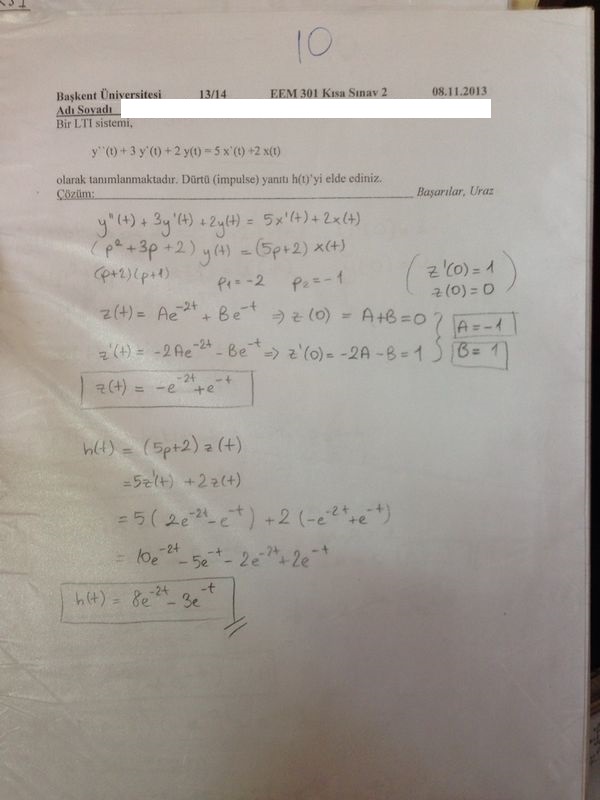 10
Başkent Üniversitesi 13/14 EEM 301 Kısa Sınav 2 08.11.2013
Adı Soyadı
Bir LTI sistemi,
y``(t) + 3 y`(t) + 2 y(t) = 5 x`(t) +2 x(t)
olarak tanımlanmaktadır. Dürtü (impulse) yanıtı h(t)'yi elde ediniz.
Çözüm: Başarılar, Uraz
y"(t) + 3y'(t) + 2y(t) = 5x'(t) + 2x(t)
(p² + 3p + 2) y(t) = (5p+2) x(t)
(p+2)(p+1) p₁ = -2 p₂ = -1
(z'(0) = 1
z(0) = 0)
z(t) = Ae⁻²ᵗ + Be⁻ᵗ ⇒ z(0) = A+B = 0 } A = -1
z'(t) = -2Ae⁻²ᵗ - Be⁻ᵗ ⇒ z'(0) = -2A - B = 1 } B = 1
z(t) = -e⁻²ᵗ + e⁻ᵗ
h(t) = (5p+2) z(t)
= 5z'(t) + 2z(t)
= 5(2e⁻²ᵗ - e⁻ᵗ) + 2(-e⁻²ᵗ + e⁻ᵗ)
= 10e⁻²ᵗ - 5e⁻ᵗ - 2e⁻²ᵗ + 2e⁻ᵗ
h(t) = 8e⁻²ᵗ - 3e⁻ᵗ